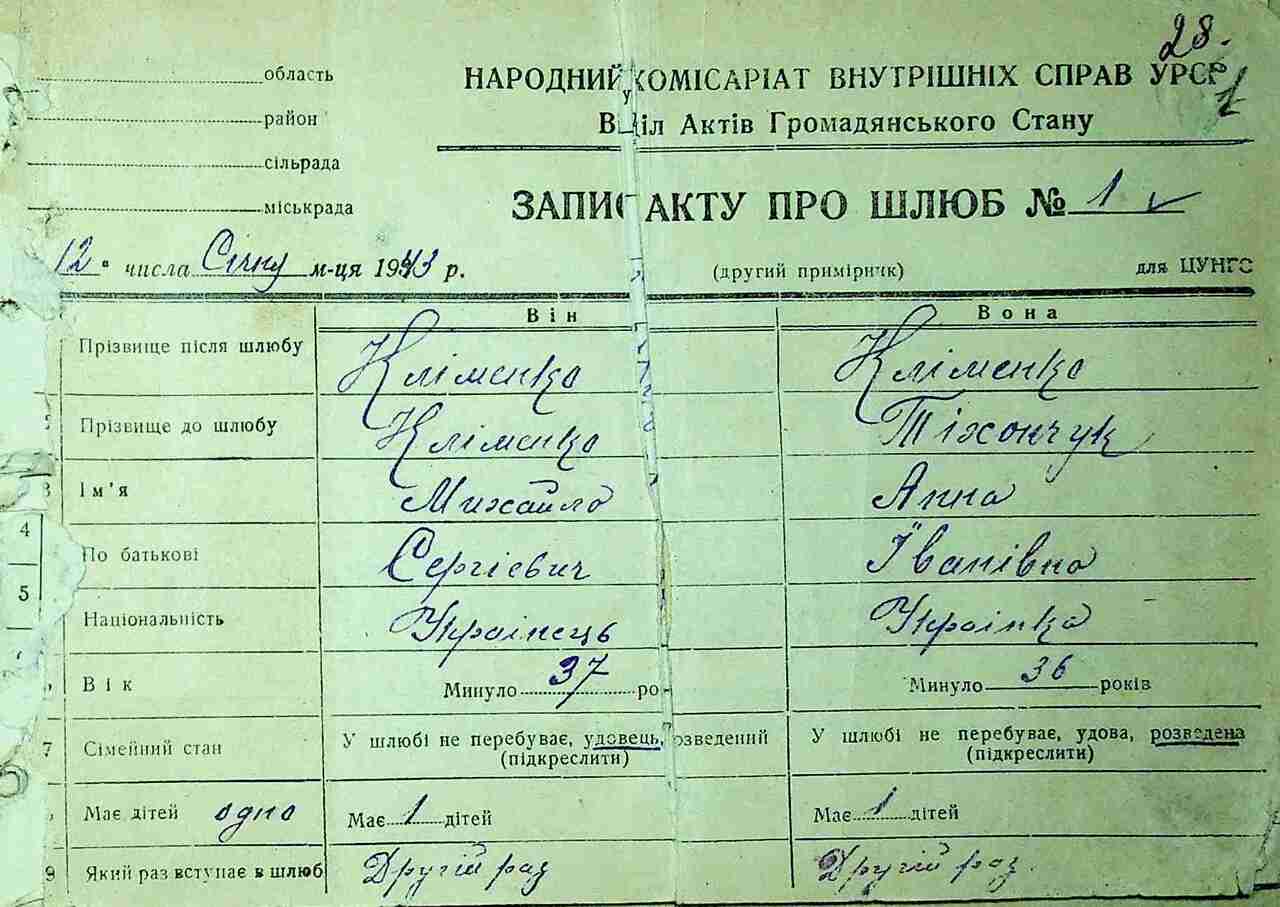 28.
1
область
район
сільрада
міськрада
НАРОДНИЙ КОМІСАРІАТ ВНУТРІШНІХ СПРАВ УРСР
Відділ Актів Громадянського Стану
ЗАПИС АКТУ ПРО ШЛЮБ № 1
12 " числа Січну м-ця 1943 р.
(другий примірник)
для ЦУНГО
Він
Вона
Прізвище після шлюбу Кліменко Кліменко
Прізвище до шлюбу Кліменко Тіхончук
3 Ім'я Михайло Анна
4 По батькові Сергієвич Іванівна
5 Національність Украінець Украінка
Вік Минуло 37 ро Минуло 36 років
7 Сімейний стан У шлюбі не перебуває, удовець, розведений У шлюбі не перебуває, удова, розведена
(підкреслити) (підкреслити)
Має дітей одно Має 1 дітей Має 1 дітей
9 Який раз вступає в шлюб Другій раз Другій раз.